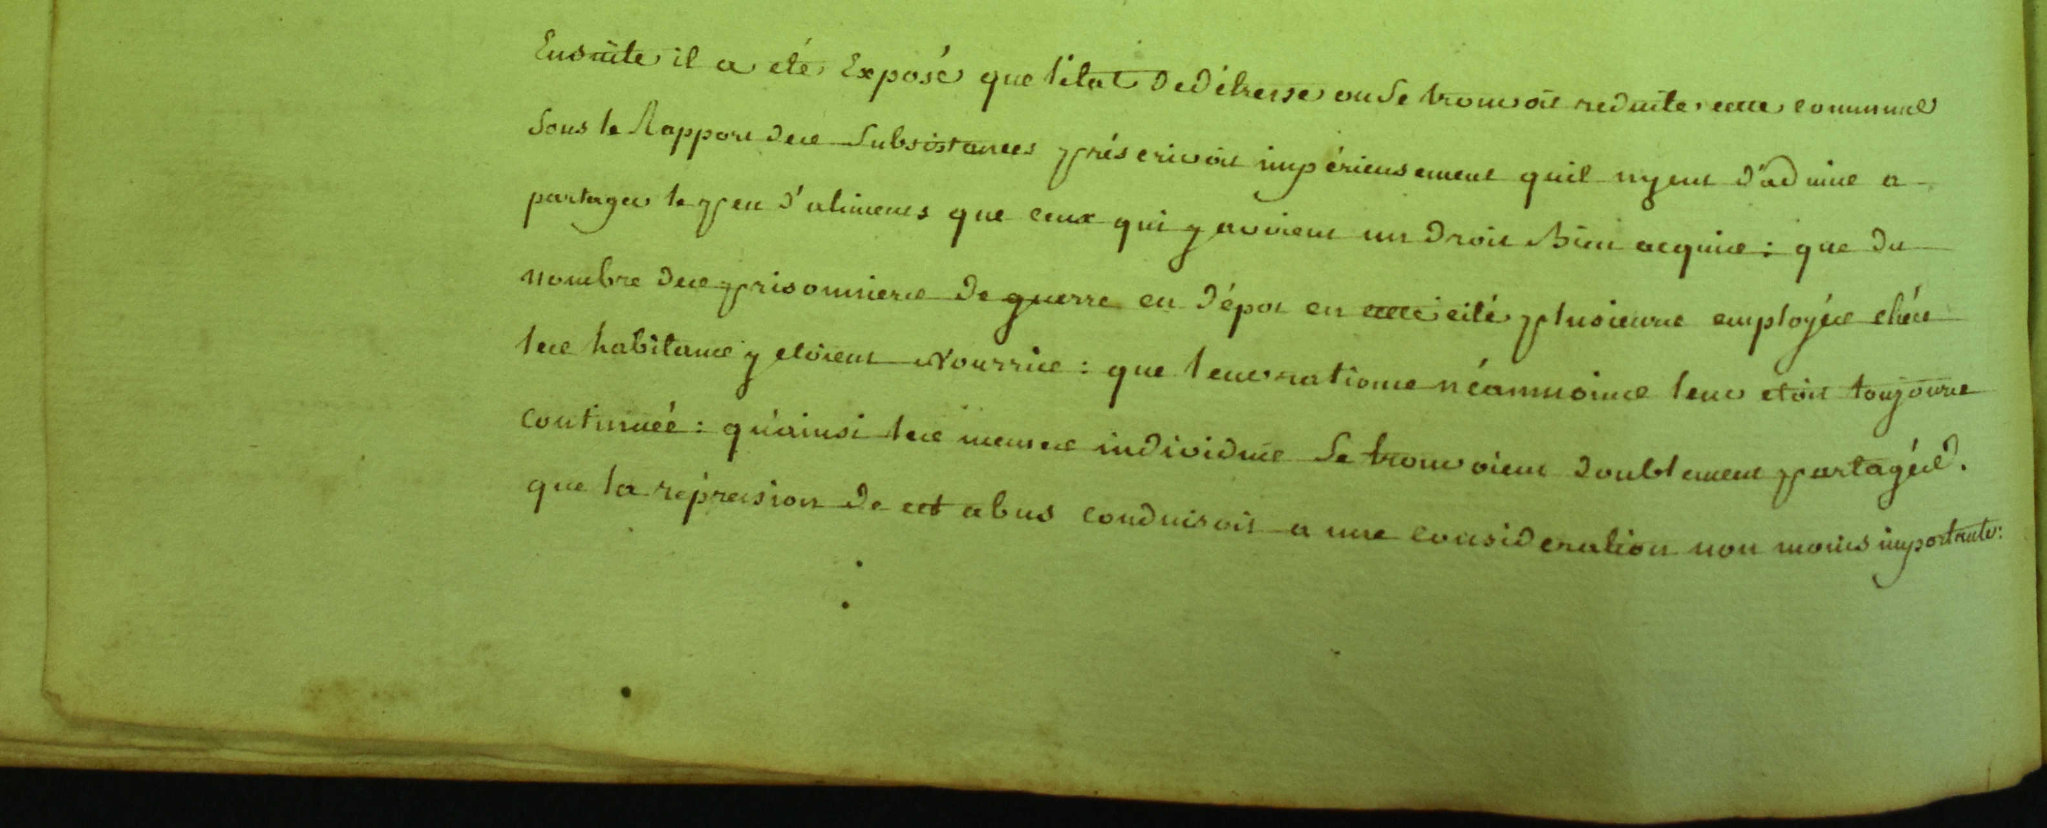 Ensuite il a eté Exposé que l'état de détresse ou se trouvoit reduite cette commune
sous le Rapport des Subsistances préscrivoit impérieusement quil n'y eut d'admis a
partager le peu d'aliments que ceux qui y avoient un droit Bien acquis : que du
nombre des prisonniers de guerre en dépot en cette cité plusieurs employés chés
les habitans y etoient Nourris : que leurs rations néanmoins leur etoit toujours
continuée : qu'ainsi les memes individus se trouvoient doublement partagés.
que la répression de cet abus conduisoit a une consideration non moins importante :